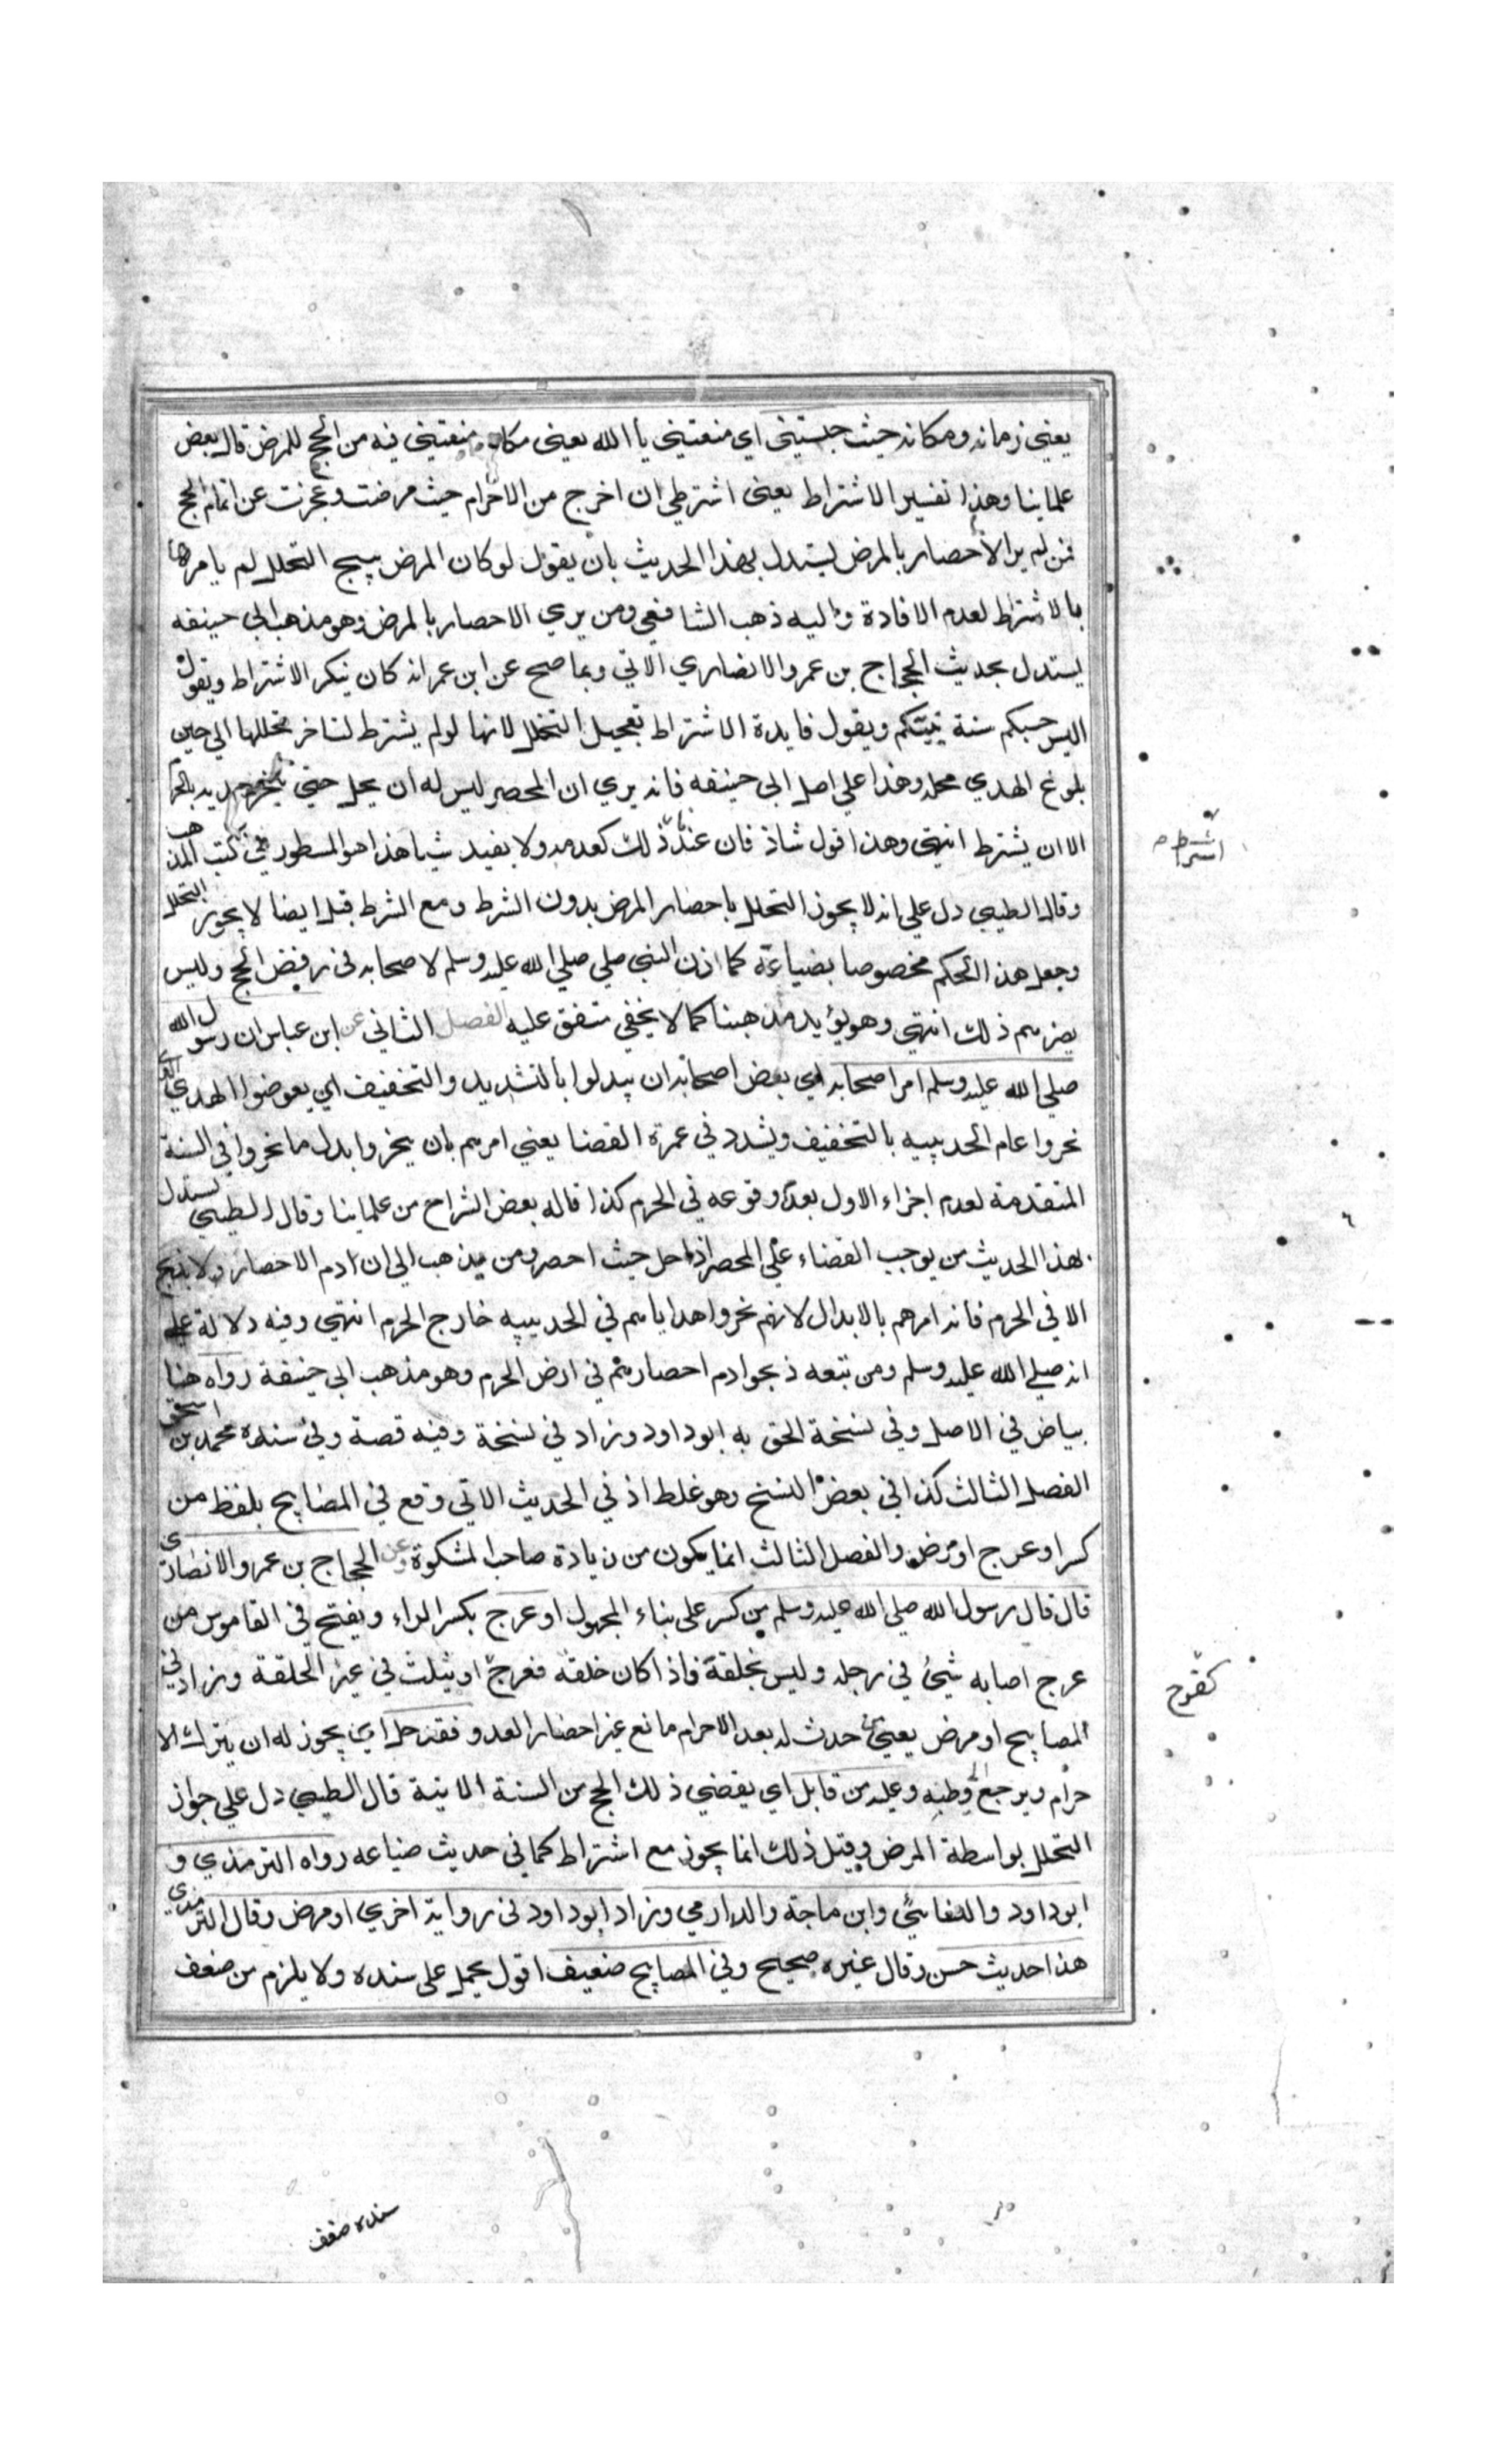 يعني زمانه ومكانه حيث حبستني اي منعتيني يا الله يعني مكان منعتيني فيه من الحج للمرض قال بعض
علماينا وهذا تفسير الاشتراط يعني اشترطي ان اخرج من الاحرام حيث مرضت وعجزت عن اتمام الحج
فمن لم ير الاحصار بالمرض يستدل بهذا الحديث بان يقول لو كان المرض يبيح التحلل لم يامرها
بالاشتراط لعدم الافادة واليه ذهب الشافعي ومن يري الاحصار بالمرض وهو مذهب ابي حنيفه
يستدل بحديث الحجاج بن عمرو الانصاري الاتي وبما صح عن ابن عمر انه كان ينكر الاشتراط ويقول
اليس حسبكم سنة نبيكم ويقول فايدة الاشتراط تعجيل التحلل لانها لو لم يشترط لتاخر تحللها الي حين
بلوغ الهدي محله وهذا علي اصل ابي حنيفه فانه يري ان المحصر ليس له ان يحل حتي ينحر هديه بالحرم
الا ان يشترط انتهي وهذا قول شاذ فان عند ذلك كعدمه ولا يفيد شيا هذا هو المسطور في كتب المذهب
وقال الطيبي دل علي انه لا يجوز التحلل باحصار المرض بدون الشرط ومع الشرط قيل ايضا لا يجوز التحلل
وجعل هذا الحكم مخصوصا بضياعة كما اذن النبي صلي صلي الله عليه وسلم لاصحابه في رفض الحج وليس
يضرهم ذلك انتهي وهو يؤيد مذهبنا كما لا يخفي متفق عليه الفصل الثاني عن ابن عباس ان رسول الله
صلي الله عليه وسلم امر اصحابه اي بعض اصحابه ان يبدلوا بالتشديد والتخفيف اي يعوضوا الهدي الذي
نحروا عام الحديبيه بالتخفيف ويشدد في عمرة القضا يعني امرهم بان ينحروا بدل ما نحروا في السنة
المتقدمة لعدم اجزاء الاول بعدم وقوعه في الحرم كذا قاله بعض الشراح من علماينا وقال الطيبي يستدل
بهذا الحديث من يوجب القضاء علي المحصر اذا حل حيث احصر ومن يذهب الي ان دم الاحصار ولا يذبح
الا في الحرم فانه امرهم بالابدال لانهم نحروا هداياهم في الحديبيه خارج الحرم انتهي وفيه دلالة علي
انه صلي الله عليه وسلم ومن تبعه ذبحوا دم احصارهم في ارض الحرم وهو مذهب ابي حنيفة رواه هنا
بياض في الاصل وفي نسخة الحق به ابو داود وزاد في نسخة وفيه قصة وفي سنده محمد بن اسحق
الفصل الثالث كذا في بعض النسخ وهو غلط اذ في الحديث الاتي وقع في المصابيح بلفظ من
كسر او عرج او مرض والفصل الثالث انما يكون من زيادة صاحب المشكوة وعن الحجاج بن عمرو الانصاري
قال قال رسول الله صلي الله عليه وسلم من كسر علي بناء المجهول او عرج بكسر الراء ويفتح في القاموس من
عرج اصابه شيئ في رجله وليس بخلقة فاذا كان خلقة فعرج او يثلث في غير الخلقة وزاد في
المصابيح او مرض يعني من حدث له بعد الاحرام مانع غير احصار العدو فقد حل اي يجوز له ان يترك الا
حرام ويرجع الي وطنه وعليه من قابل اي يقضي ذلك الحج من السنة الاتية قال الطيبي دل علي جواز
التحلل بواسطة المرض وقيل ذلك انما يجوز مع اشتراط كما في حديث ضباعه رواه الترمذي و
ابو داود والنسائي وابن ماجة والدارمي وزاد ابو داود في رواية اخري او مرض وقال الترمذي
هذا حديث حسن وقال غيره صحيح وفي المصابيح ضعيف اقول يحمل علي سنده ولا يلزم من ضعف
اشتراط
كفرح
سنده ضعف